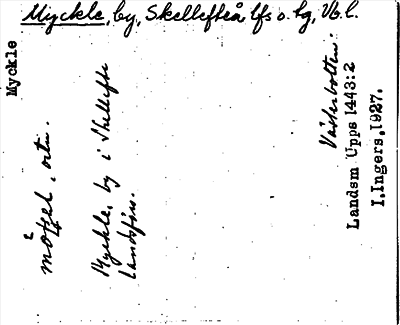 Myckle, by, Skellefteå lfs o. tg, Vb l.
Myckle
ortn.
Myckle, by i Skellefte
landsförs.
Västerbotten:
Landsm Upps 1443:2
I.Ingers,1927.